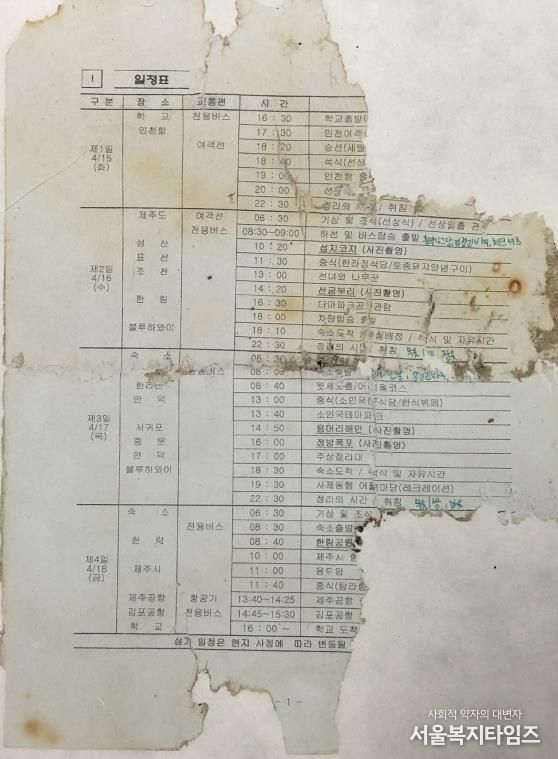 Ⅰ 일정표
구 분 장 소 교통편 시 간
제1일 4/15 (화)
학 교 전용버스 16 : 30 학교출발(
인천항 17 : 30 인천여객
여객선 18 : 20 승선(세월
18 : 40 석식(선상
19 : 00 인천항
20 : 00 선상
22 : 30 정리의 / 취침
제2일 4/16 (수)
제주도 여객선 06 : 30 기상 및 조식(선상식) / 선상일출 관
전용버스 08:30~09:00 하선 및 버스탑승 출발
성 산 10 : 20 섭지코지 (사진촬영)
표 선 11 : 30 중식(한라정식당/토종돼지양념구이)
조 천 13 : 00 선녀와 나무꾼
14 : 20 산굼부리 (사진촬영)
한 림 16 : 30 더마파크공연관람
18 : 00 차량탑승 출발
블루하와이 18 : 10 숙소도착 / 실배정 / 석식 및 자유시간
22 : 30 정리의 시간 / 취침
제3일 4/17 (목)
숙 소 06 : 30
08 : 00 숙소출발
한라산 08 : 40 윗세오름/어리목코스
안 덕 13 : 00 중식(소인국 식당/한식뷔페)
13 : 40 소인국테마파크
서귀포 14 : 50 용머리해안 (사진촬영)
중 문 16 : 00 정방폭포 (사진촬영)
안 덕 17 : 00 주상절리대
블루하와이 18 : 30 숙소도착 / 석식 및 자유시간
19 : 30 사제동행 어울 마당(레크레이션)
22 : 30 정리의 시간 / 취침
제4일 4/18 (금)
숙 소 06 : 30 기상 및 조식
전용버스 08 : 30 숙소출발
한 림 08 : 40 한림공원
10 : 00 제주시
제주시 11 : 00 용두암
11 : 40 중식(탐라
제주공항 항공기 13:40~14:25 제주공항
김포공항 전용버스 14:45~15:30 김포공항
학 교 16 : 00 ~ 학교 도착
상기 일정은 현지 사정에 따라 변동될
- 1 -
사회적 약자의 대변자
서울복지타임즈